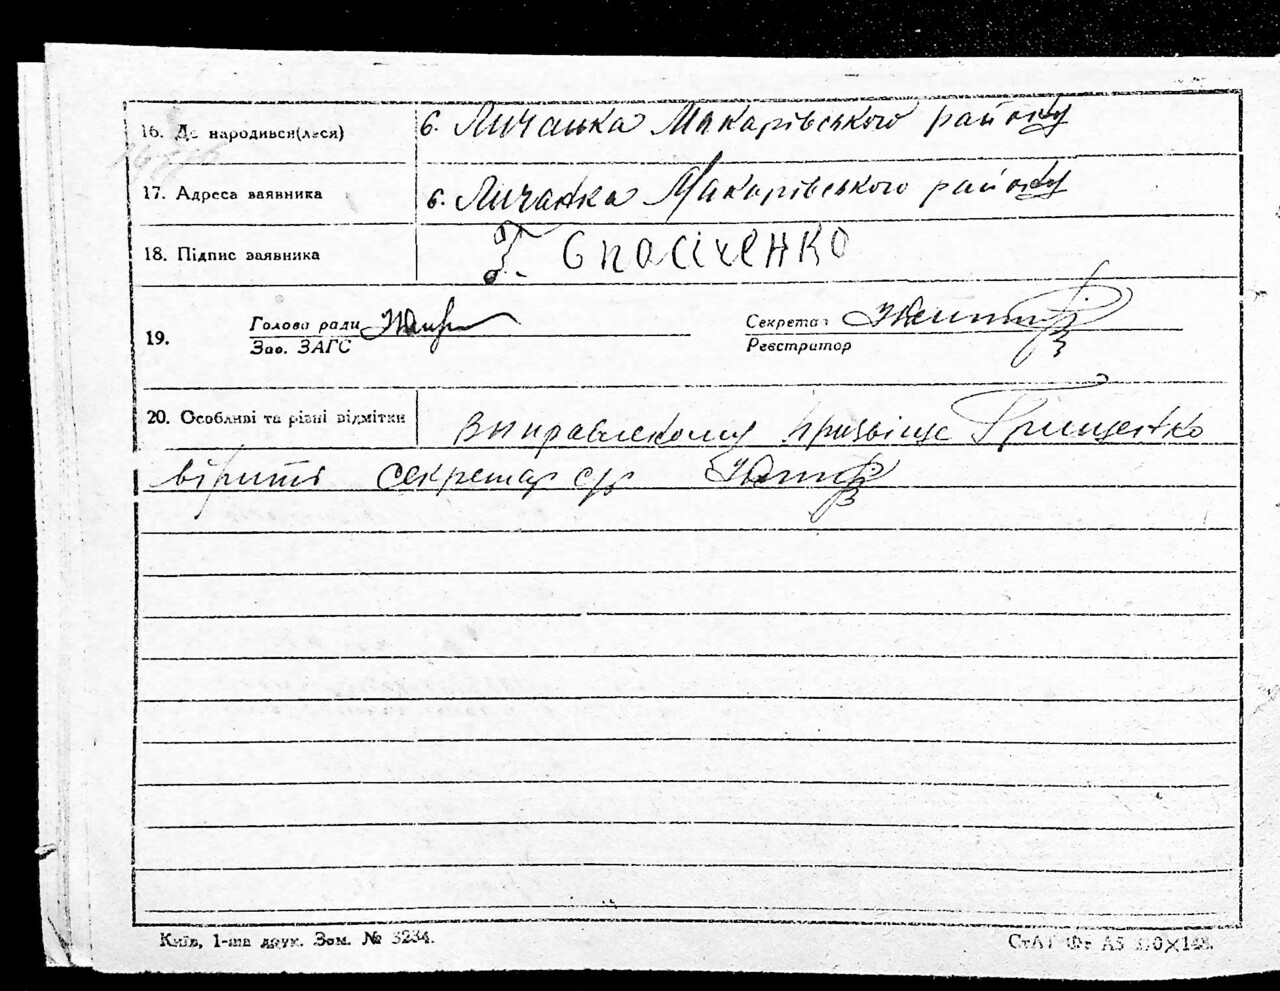 16. Де народився(лася) с. Личанка Макарівського району
17. Адреса заявника с. Личанка Макарівського району
18. Підпис заявника Г. Спасіченко
19. Голова ради
Зав. ЗАГС
Секретар
Реєстратор
20. Особливі та різні відмітки Виправленому прізвище Грищенко
вірити секретар с/р
Київ, 1-ша друк. Зам. № 3234.
СтАТ Фт А5 210×148.